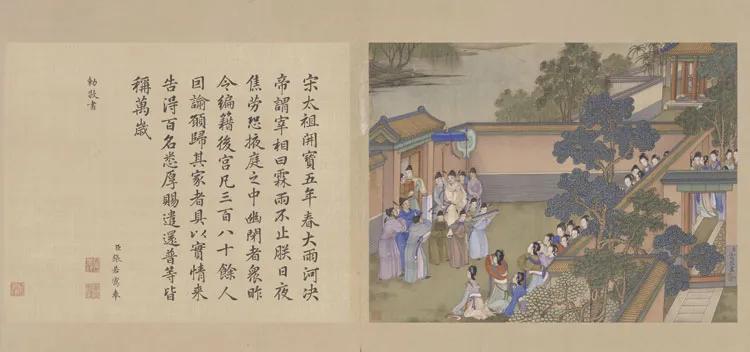 宋太祖開寶五年春大雨河决
帝謂宰相曰霖雨不止朕日夜
焦勞恐掖庭之中幽閉者衆昨
令編籍後宮凡三百八十餘人
因諭願歸其家者具以實情来
告得百名悉厚賜遣還普等皆
稱萬歲
臣張若靄奉
勅敬書